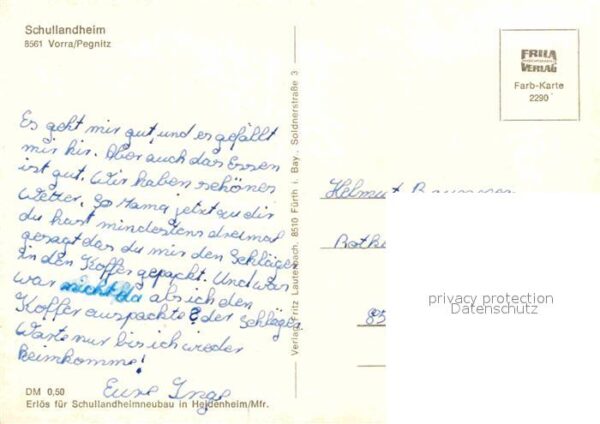 Schullandheim
8561 Vorra/Pegnitz
Es geht mir gut, und es gefällt
mir hir. Aber auch das Essen
ist gut. Wir haben schönes
Wetter. So Mama jetzt zu dir
du hast mindestens dreimal
gesagt das du mir den Schläger
in den Koffer gepackt. Und was
war nicht da als ich den
Koffer auspackte? der Schläger
Warte nur bis ich wieder
heimkomme!
Eure Inge
DM 0,50
Erlös für Schullandheimneubau in Heidenheim/Mfr.
Verlag Fritz Lauterbach, 8510 Fürth i. Bay. Soldnerstraße 3
FRILA
VERLAG
Farb-Karte
2290
Helmut
Rothe
85
privacy protection
Datenschutz